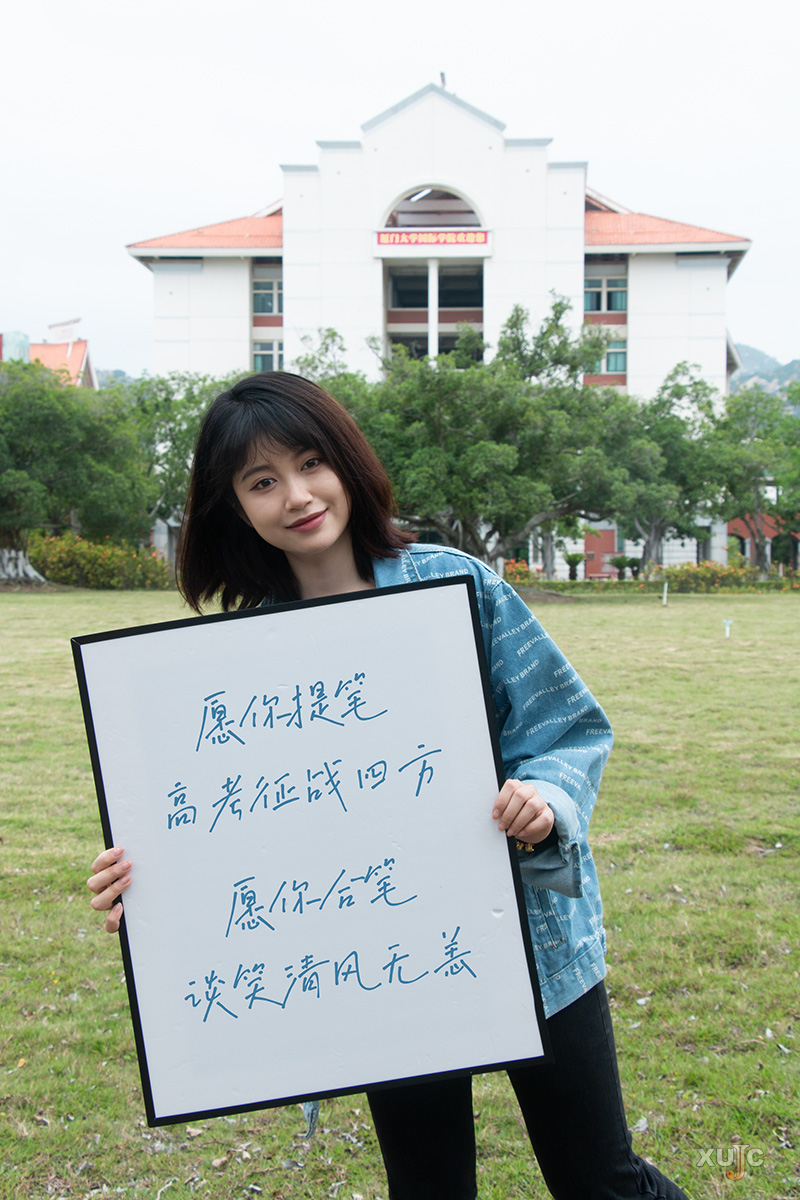 厦门大学国际学院欢迎您
愿你提笔
高考征战四方
愿你合笔
谈笑清风无恙
FREEVALLEY BRAND
XUJC